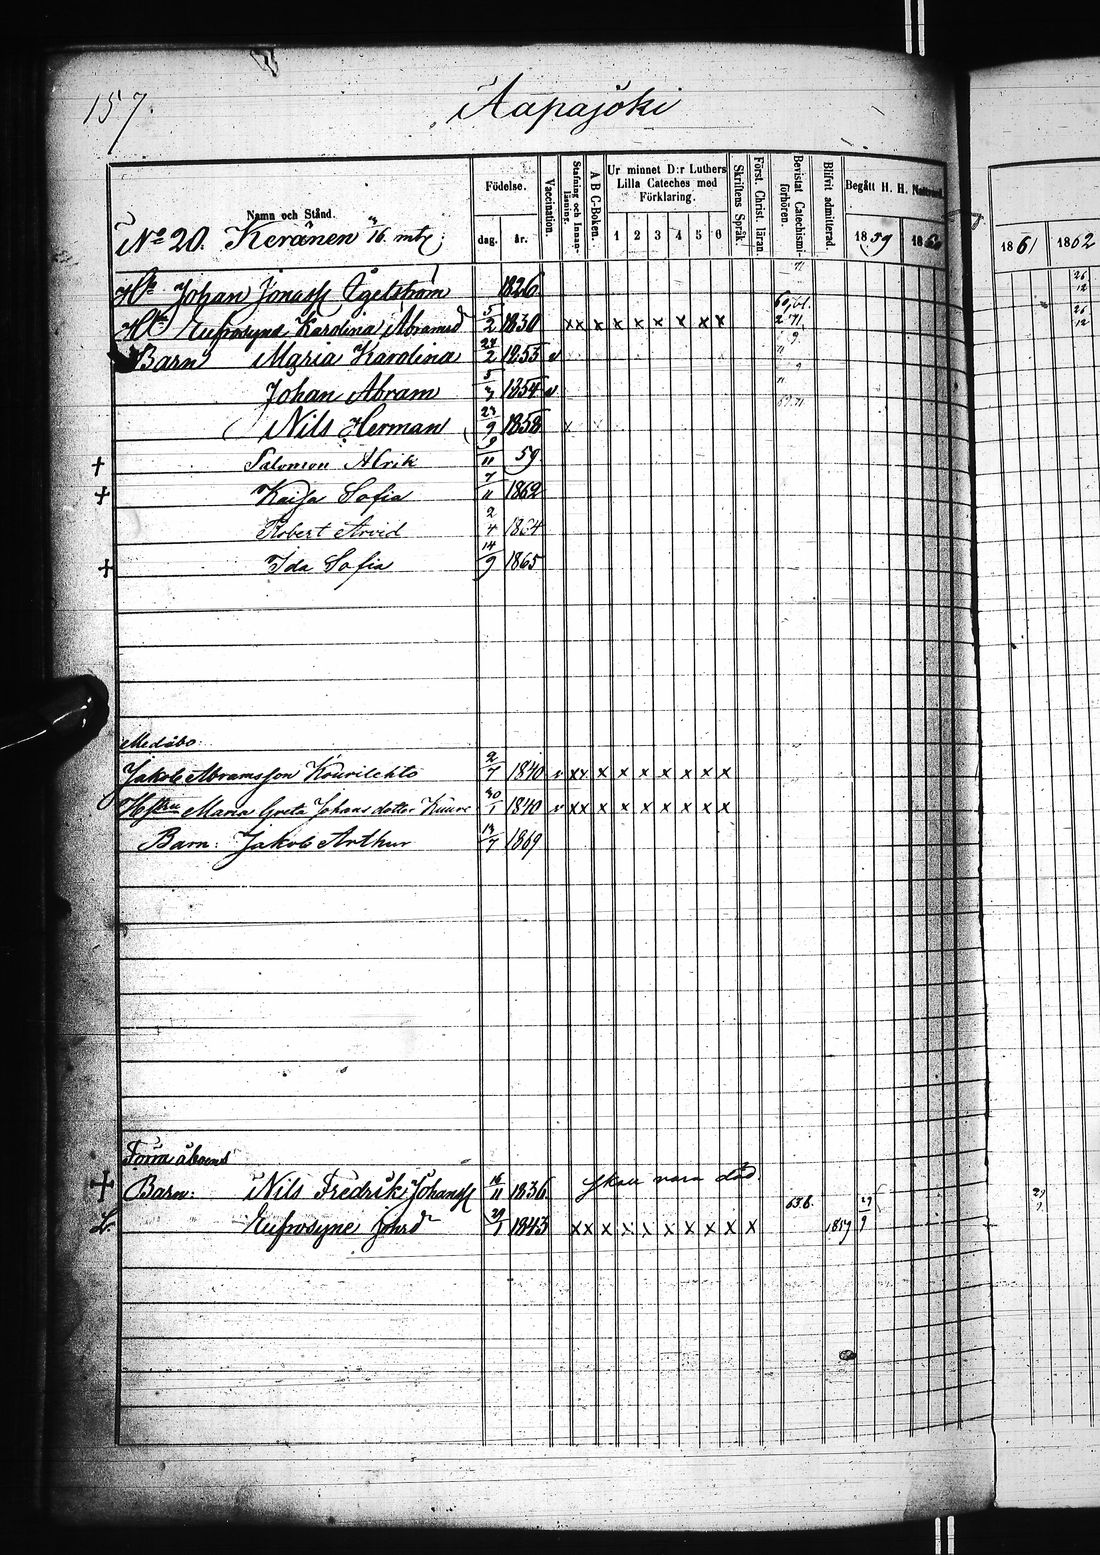 157.
Aapajoki
Namn och Stånd.
Födelse.
dag.
år.
Vaccination.
Stafning och Innanläsning.
A B C-Boken.
Ur minnet D:r Luthers
Lilla Cateches med
Förklaring.
1 2 3 4 5 6
Skriftens Språk.
Först. Christ. läran.
Bevistat Catechismi-förhören.
Blifvit admitterad.
Begått H. H. Nattvard
1859
1861 1862
No 20. Keränen 3/16 mtl;
Johan Jonass Ögelström 1826
Eufrosyne Karolina Abramsd 5/2 1830 x x x x x x x x x
Barn Maria Karolina 24/2 1853 v
Johan Abram 5/3 1854 v
Nils Herman 23/9 1858
† Salomon Alrik 9/11 59
† Kaisa Sofia 7/11 1862
Robert Arvid 2/4 1864
† Ida Sofia 14/9 1865
Medåbo:
Jakob Abramsson Kourilehto 2/7 1840 v x x x x x x x x x
Hustru Maria Greta Johans dotter Kuure 30/1 1840 v x x x x x x x x x
Barn: Jakob Arthur 1869
Förra åboens
† Barn: Nils Fredrik Johanss 16/11 1836 skall vara död.
Eufrosyne Johsd 29/1 1843 x x x x x x x x x x 1859